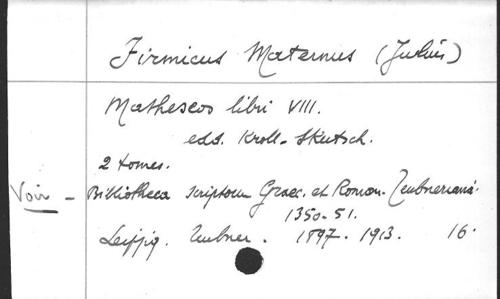 Firmicus Maternus (Julius)
Matheseos libri VIII.
edd. Kroll - Skutsch.
2 tomes.
Voir - Bibliotheca scriptorum Graec. et Roman. Teubneriana.
1350-51.
Leipzig. Teubner. 1897-1913. 16.